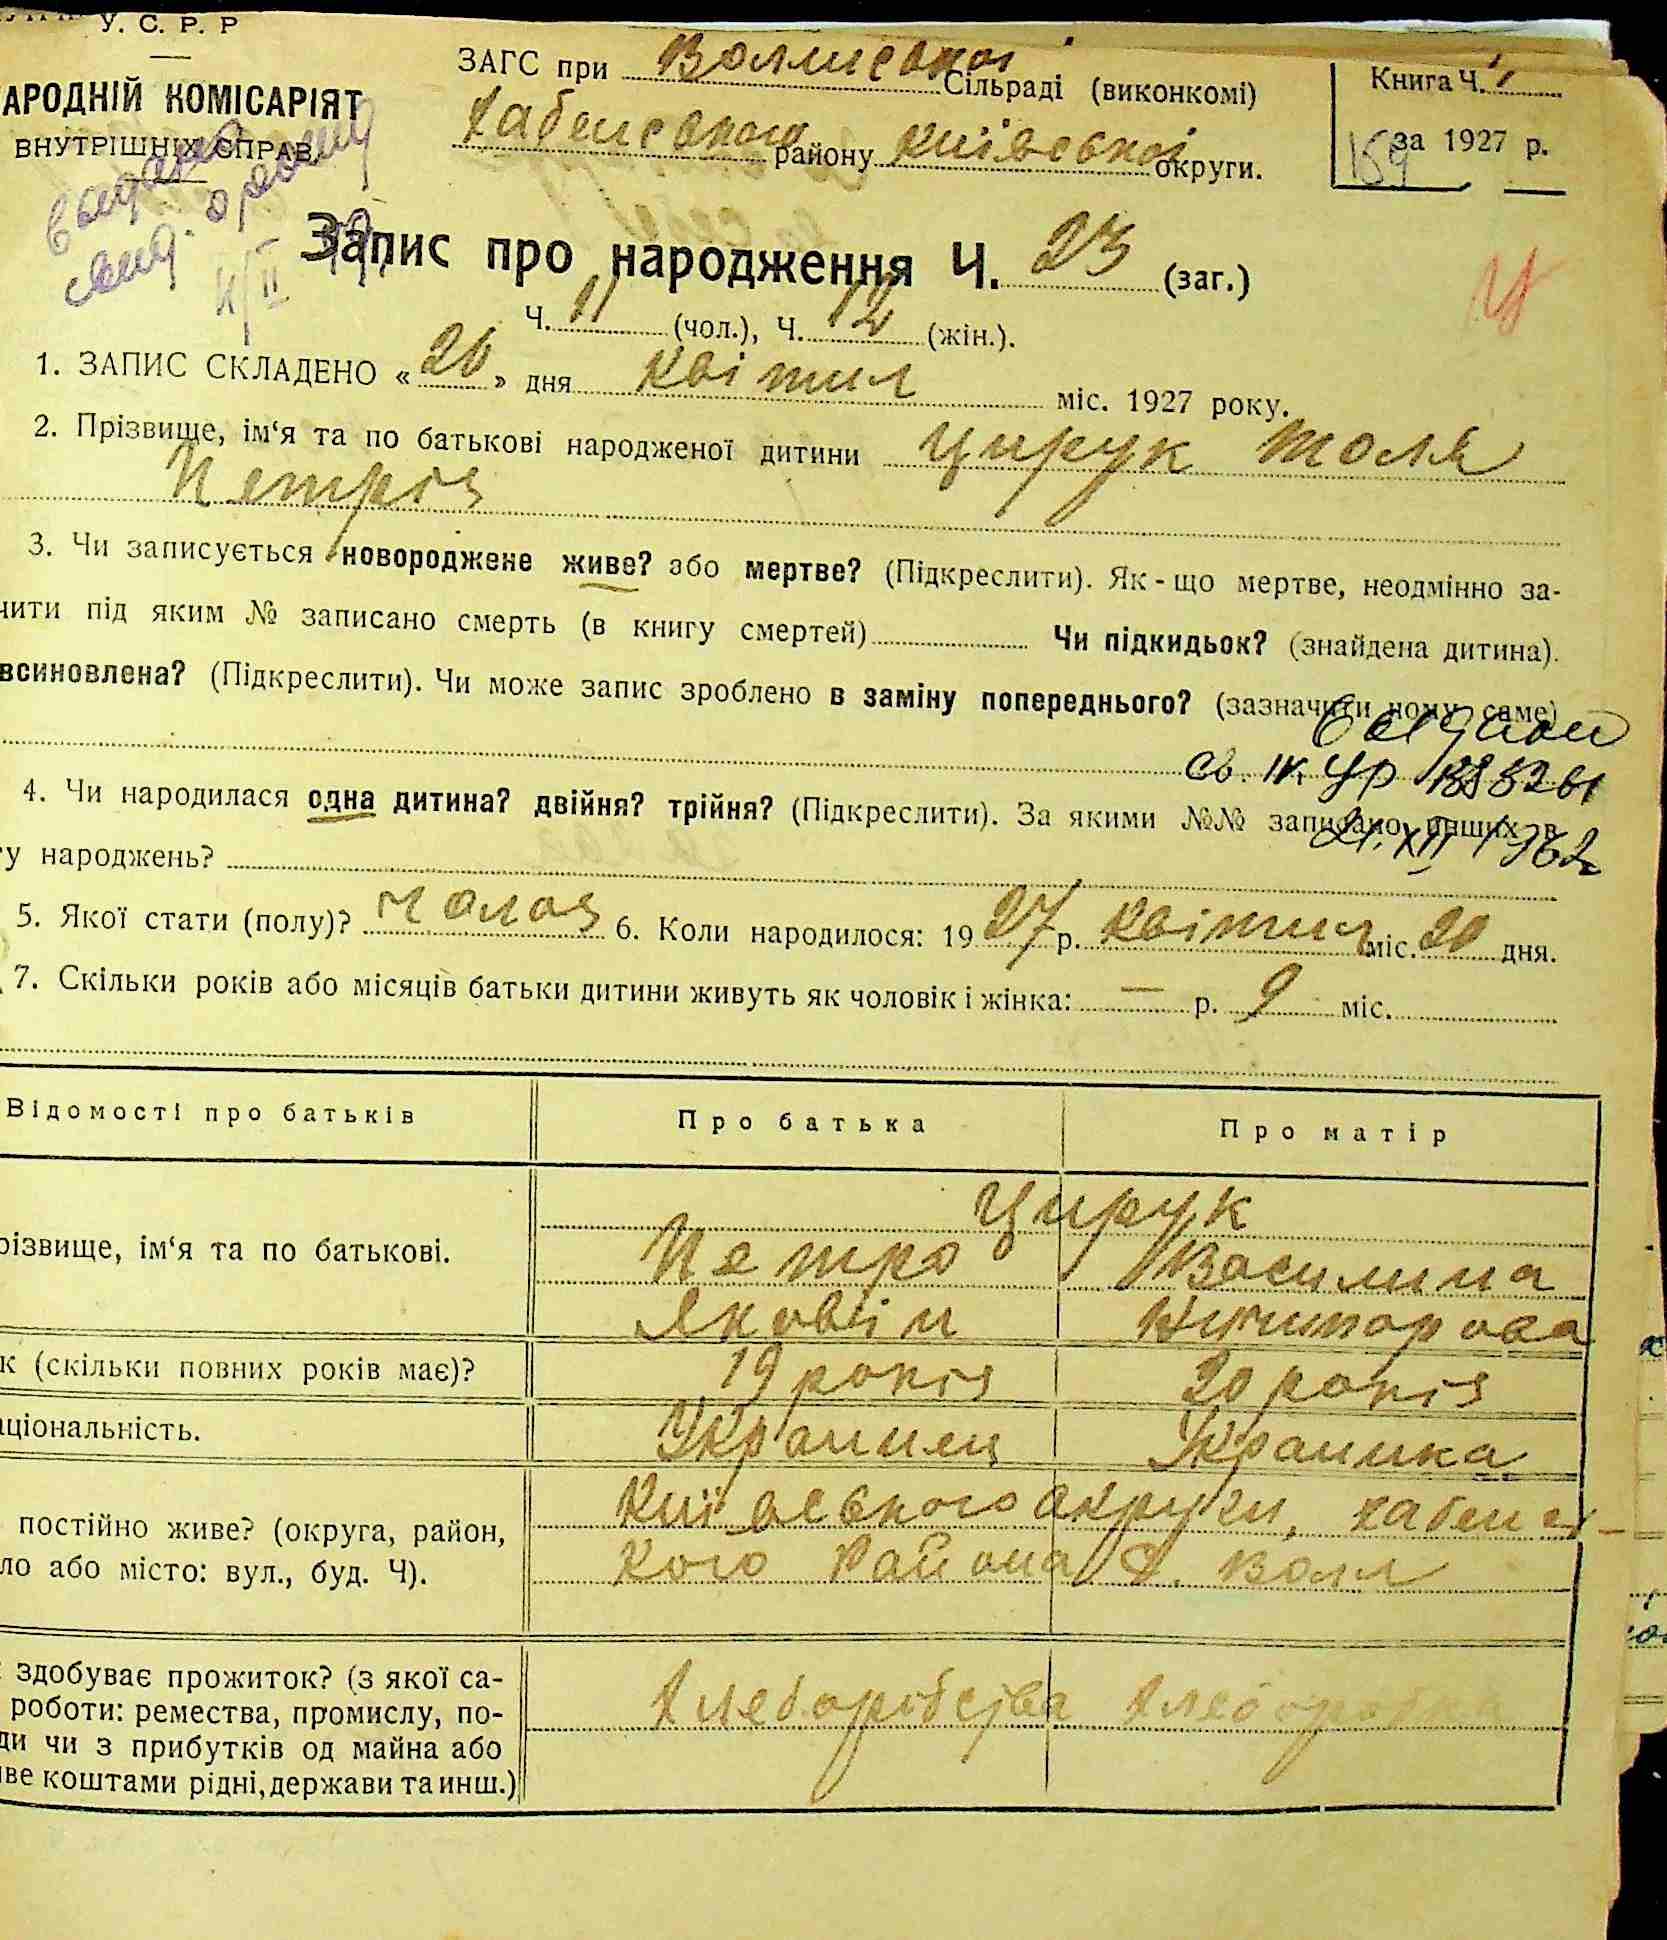 У. С. Р. Р
АРОДНІЙ КОМІСАРІЯТ
ВНУТРІШНІХ СПРАВ
ЗАГС при Воллиської Сільраді (виконкомі)
Хабенського району Київської округи.
Книга Ч. 1
за 1927 р.
159
Запис про народження Ч. 23 (заг.)
Ч. 11 (чол.), Ч. 12 (жін.).
1. ЗАПИС СКЛАДЕНО « 26 » дня квітня міс. 1927 року.
2. Прізвище, ім‘я та по батькові народженої дитини Цирук Толя
Петрів
3. Чи записується новороджене живе? або мертве? (Підкреслити). Як-що мертве, неодмінно за-
чити під яким № записано смерть (в книгу смертей) Чи підкидьок? (знайдена дитина).
всиновлена? (Підкреслити). Чи може запис зроблено в заміну попереднього? (зазначити чому саме)
21.XII 1962
4. Чи народилася одна дитина? двійня? трійня? (Підкреслити). За якими №№ записано инших в
у народжень?
5. Якої стати (полу)? чолов 6. Коли народилося: 1927 р. квітня міс. 20 дня.
7. Скільки років або місяців батьки дитини живуть як чоловік і жінка: — р. 9 міс.
Відомості про батьків Про батька Про матір
різвище, ім‘я та по батькові.
Цирук
Петро Василина
Яковів Ничипорова
к (скільки повних років має)? 19 років 20 років
аціональність. Украинец Украинка
постійно живе? (округа, район,
ло або місто: вул., буд. Ч).
Київського округи, Хабенсь-
кого Района С. Волл
здобуває прожиток? (з якої са-
роботи: ремества, промислу, по-
ди чи з прибутків од майна або
ве коштами рідні, держави та инш.)
Хлеборобства Хлеборобка